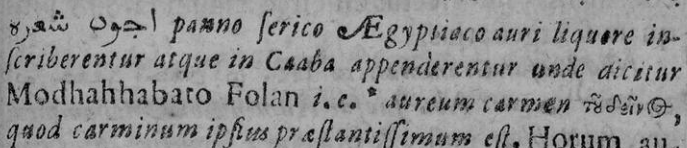 اجون شعره panno ſerico Ægyptiaco auri liquore in-
ſcriberentur atque in Caaba appenderentur unde dicitur
Modhahhabato Folan i. e. * aureum carmen
quod carminum ipſius præſtantiſſimum eſt. Horum au-